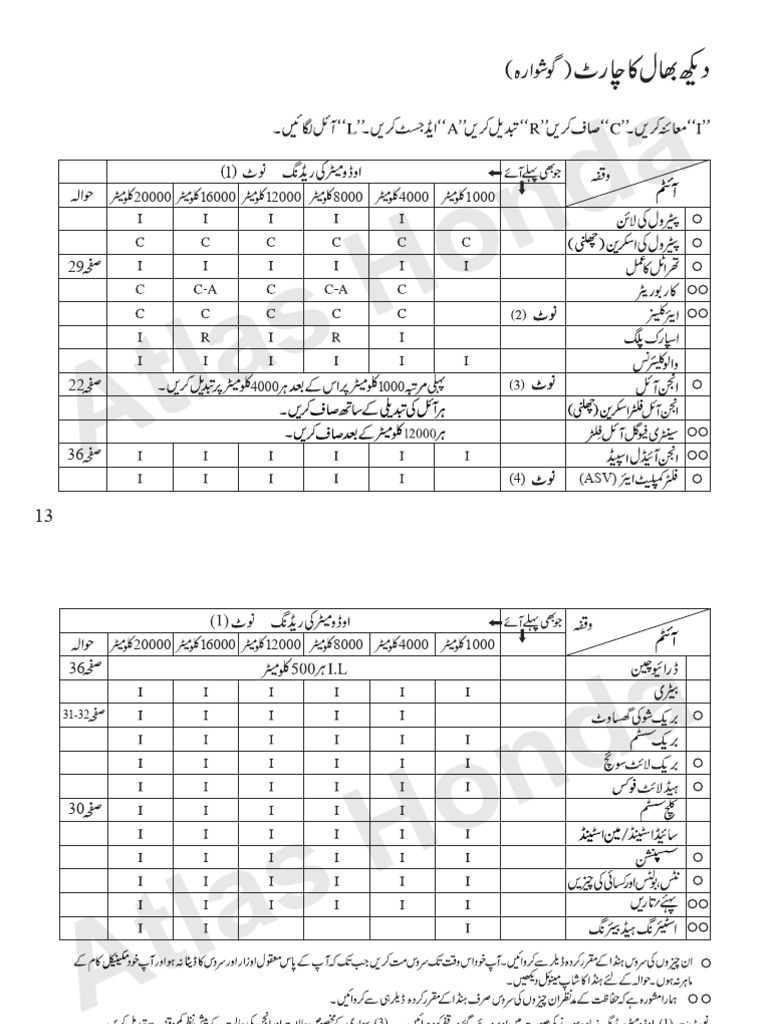 دیکھ بھال کا چارٹ (گوشوارہ)
”I“ معائنہ کریں۔ ”C“ صاف کریں ”R“ تبدیل کریں ”A“ ایڈجسٹ کریں۔ ”L“ آئل لگائیں۔
وقفہ آئٹم جو بھی پہلے آئے اوڈومیٹر کی ریڈنگ نوٹ (1)
1000 کلومیٹر 4000 کلومیٹر 8000 کلومیٹر 12000 کلومیٹر 16000 کلومیٹر 20000 کلومیٹر حوالہ
پیٹرول کی لائن I I I I I
پیٹرول کی اسکرین (چھلنی) C C C C C C
تھراٹل کا عمل I I I I I I صفحہ 29
کاربوریٹر C C-A C C-A C
ایئر کلینر نوٹ (2) C C C C C
اسپارک پلگ I R I R I
والو کلیئرنس I I I I I I
انجن آئل نوٹ (3) پہلی مرتبہ 1000 کلومیٹر پر اس کے بعد ہر 4000 کلومیٹر پر تبدیل کریں۔ صفحہ 22
انجن آئل فلٹر اسکرین (چھلنی) ہر آئل کی تبدیلی کے ساتھ صاف کریں۔
سینٹری فیوگل آئل فلٹر ہر 12000 کلومیٹر کے بعد صاف کریں۔
انجن آئیڈل اسپیڈ I I I I I I صفحہ 36
فلٹر کمپلیٹ ایئر (ASV) نوٹ (4) I I I I I
13
وقفہ آئٹم جو بھی پہلے آئے اوڈومیٹر کی ریڈنگ نوٹ (1)
1000 کلومیٹر 4000 کلومیٹر 8000 کلومیٹر 12000 کلومیٹر 16000 کلومیٹر 20000 کلومیٹر حوالہ
ڈرائیو چین I.L ہر 500 کلومیٹر صفحہ 36
بیٹری I I I I I I
بریک شو کی گھساوٹ I I I I I صفحہ 31-32
بریک سسٹم I I I I I I
بریک لائٹ سوئچ I I I I I I
ہیڈ لائٹ فوکس I I I I I I
کلچ سسٹم I I I I I صفحہ 30
سائیڈ اسٹینڈ/مین اسٹینڈ I I I I I I
سسپنشن I I I I I I
نٹس، بولٹس اور کسائی کی چیزیں I I I I I I
پہئے رتاریں I I I I I I
اسٹیئرنگ ہیڈ بیئرنگ I I I
ان چیزوں کی سروس ہنڈا کے مقرر کردہ ڈیلر سے کروائیں۔ آپ خود اس وقت تک سروس مت کریں جب تک کہ آپ کے پاس معقول اوزار اور سروس کا ڈیٹا نہ ہو اور آپ خود مکینیکل کام کے
ماہر نہ ہوں۔ حوالہ کے لئے ہنڈا کا شاپ مینول دیکھیں۔
ہمارا مشورہ ہے کہ حفاظت کے مدنظر ان چیزوں کی سروس صرف ہنڈا کے مقرر کردہ ڈیلر ہی سے کروائیں۔
Atlas Honda
Atlas Honda